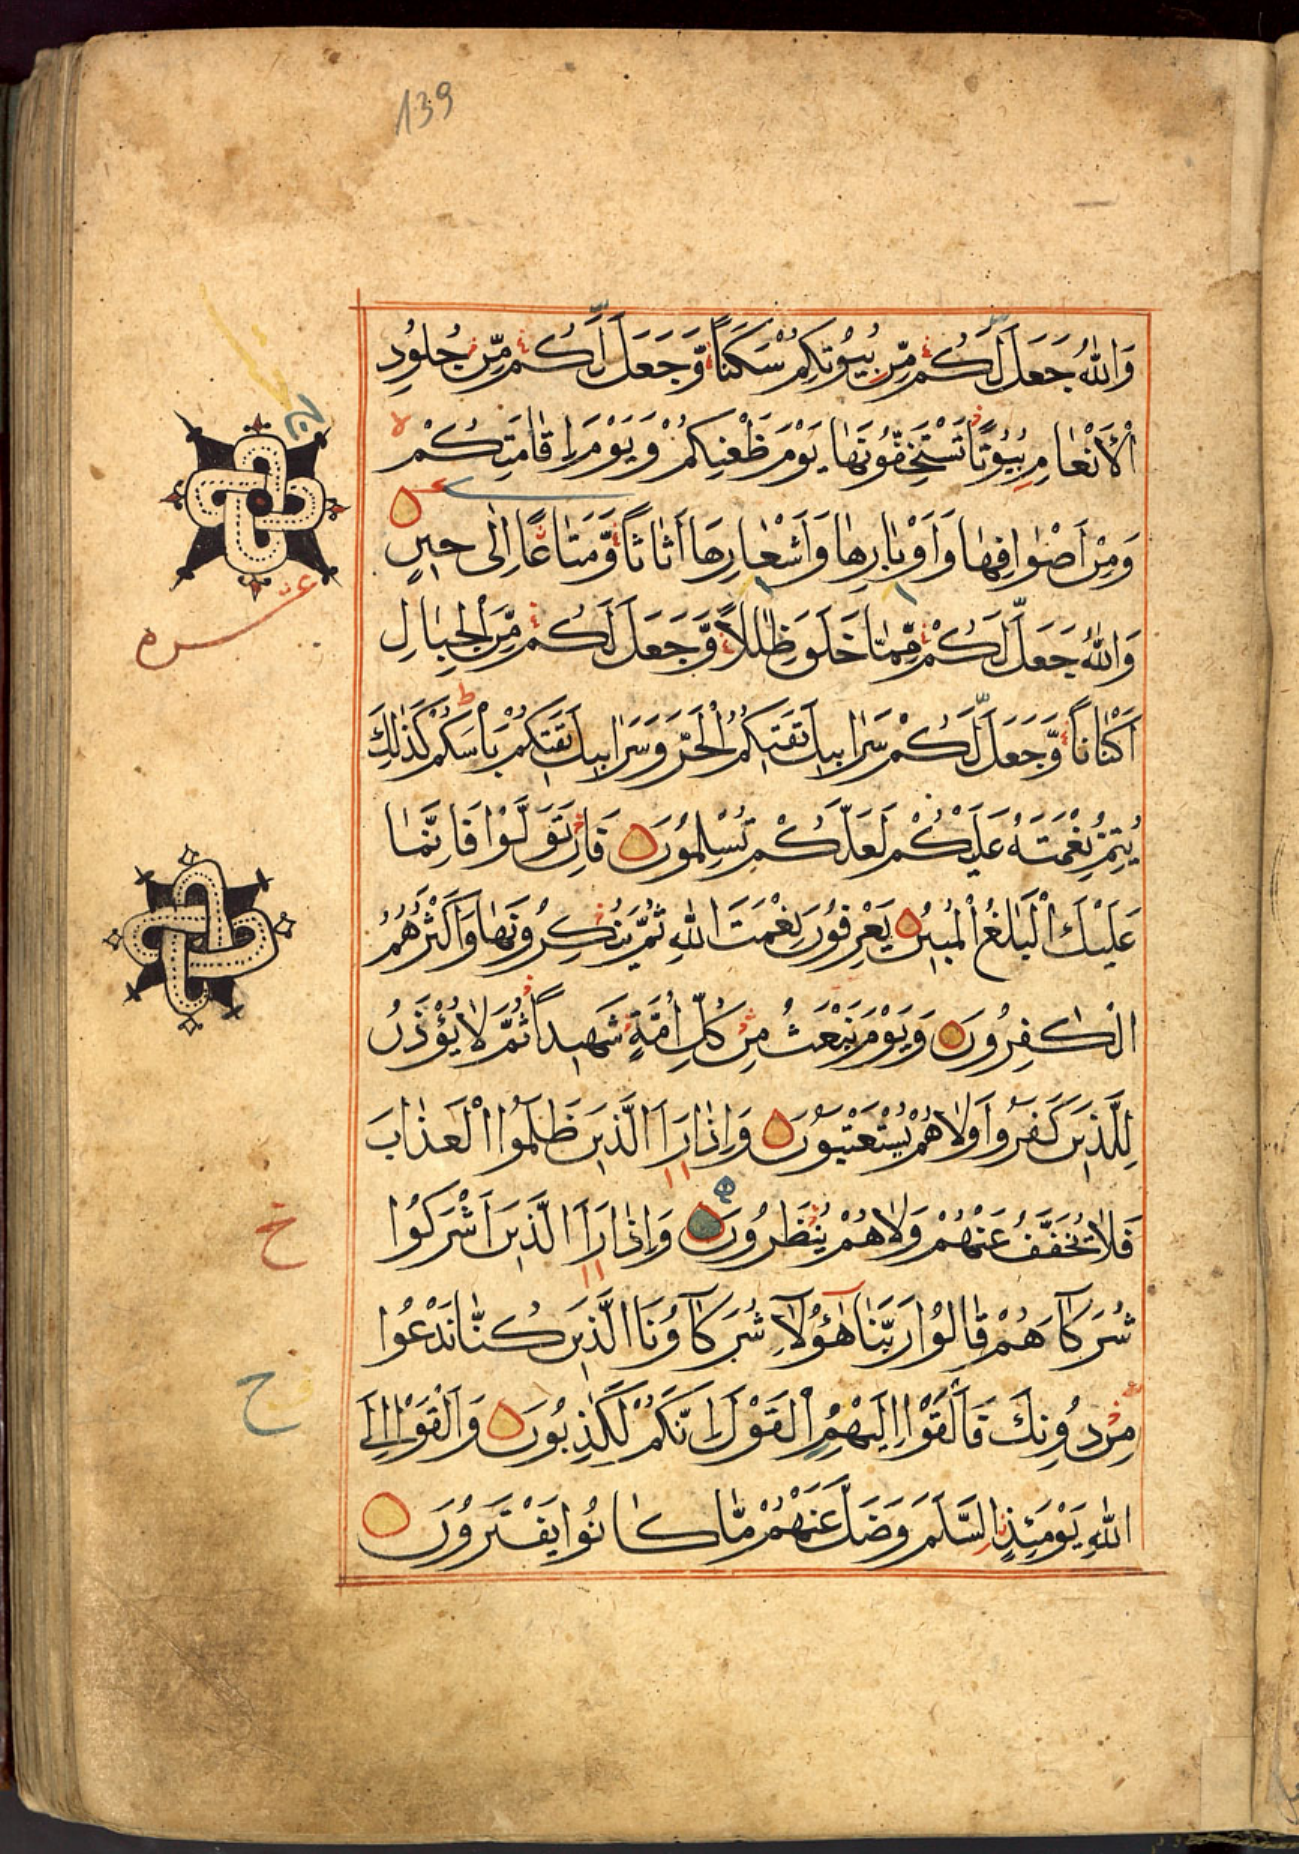 139
وَاللّٰهُ جَعَلَ لَكُمْ مِّنْ بُيُوْتِكُمْ سَكَنًا وَّجَعَلَ لَكُمْ مِّنْ جُلُوْدِ
الْاَنْعَامِ بُيُوْتًا تَسْتَخِفُّوْنَهَا يَوْمَ ظَعْنِكُمْ وَيَوْمَ اِقَامَتِكُمْ
وَمِنْ اَصْوَافِهَا وَاَوْبَارِهَا وَاَشْعَارِهَا اَثَاثًا وَّمَتَاعًا اِلٰى حِيْنٍ
وَاللّٰهُ جَعَلَ لَكُمْ مِّمَّا خَلَقَ ظِلٰلًا وَّجَعَلَ لَكُمْ مِّنَ الْجِبَالِ
اَكْنَانًا وَّجَعَلَ لَكُمْ سَرَابِيْلَ تَقِيْكُمُ الْحَرَّ وَسَرَابِيْلَ تَقِيْكُمْ بَأْسَكُمْ كَذٰلِكَ
يُتِمُّ نِعْمَتَهُ عَلَيْكُمْ لَعَلَّكُمْ تُسْلِمُوْنَ فَاِنْ تَوَلَّوْا فَاِنَّمَا
عَلَيْكَ الْبَلٰغُ الْمُبِيْنُ يَعْرِفُوْنَ نِعْمَتَ اللّٰهِ ثُمَّ يُنْكِرُوْنَهَا وَاَكْثَرُهُمُ
الْكٰفِرُوْنَ وَيَوْمَ نَبْعَثُ مِنْ كُلِّ اُمَّةٍ شَهِيْدًا ثُمَّ لَا يُؤْذَنُ
لِلَّذِيْنَ كَفَرُوْا وَلَا هُمْ يُسْتَعْتَبُوْنَ وَاِذَا رَاَ الَّذِيْنَ ظَلَمُوا الْعَذَابَ
فَلَا يُخَفَّفُ عَنْهُمْ وَلَا هُمْ يُنْظَرُوْنَ وَاِذَا رَاَ الَّذِيْنَ اَشْرَكُوْا
شُرَكَآءَهُمْ قَالُوْا رَبَّنَا هٰٓؤُلَآءِ شُرَكَآؤُنَا الَّذِيْنَ كُنَّا نَدْعُوْا
مِنْ دُوْنِكَ فَاَلْقَوْا اِلَيْهِمُ الْقَوْلَ اِنَّكُمْ لَكٰذِبُوْنَ وَاَلْقَوْا اِلَى
اللّٰهِ يَوْمَئِذٍ السَّلَمَ وَضَلَّ عَنْهُمْ مَّا كَانُوْا يَفْتَرُوْنَ